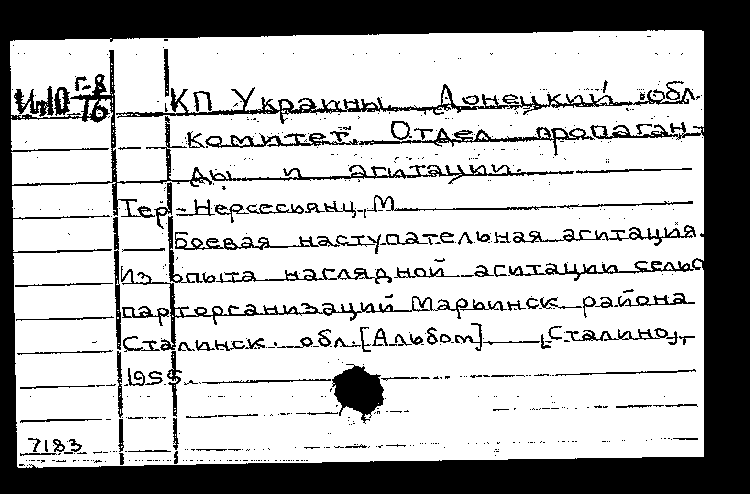 И-10 Г-8/16
КП Украины. Донецкий обл.
комитет. Отдел пропаган-
ды и агитации.
Тер-Нерсесьянц, М.
Боевая наступательная агитация.
Из опыта наглядной агитации сельс.
парторганизаций Марьинск. района
Сталинск. обл. [Альбом]. [Сталино],
1955.
7183